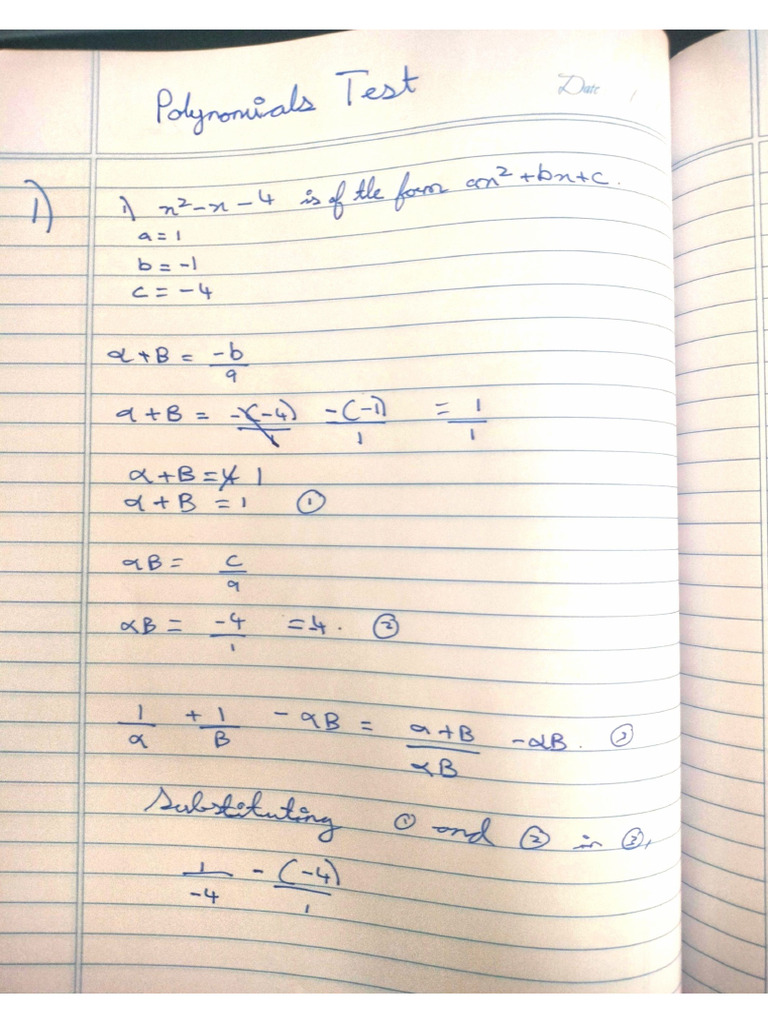 Polynomials Test
Date
1) i) x² - x - 4 is of the form ax² + bx + c.
a = 1
b = -1
c = -4
α + B = -b/a
α + B = -(-4)/1 -(-1)/1 = 1/1
α + B = 1
α + B = 1 ①
αB = c/a
αB = -4/1 = 4. ②
1/α + 1/B - αB = α+B/αB - αB. ③
Substituting ① and ② in ③,
1/-4 - (-4)/1